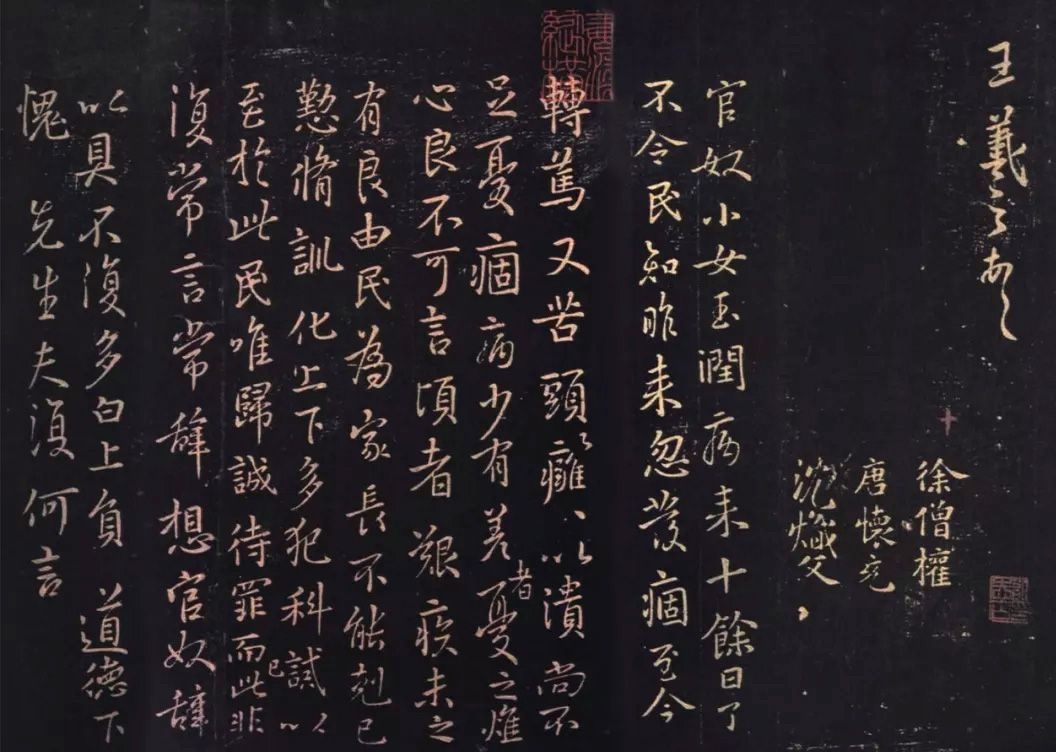 王羲之頓首
徐僧權
唐懷充
沈熾文
官奴小女玉潤病來十餘日了
不令民知昨來忽發痼至今
轉篤又苦頭癰、以潰尚不
足憂痼病少有差者憂之燋
心良不可言頃者艱疾未之
有良由民為家長不能剋己
懃脩訓化上下多犯科誡以
至於此民唯歸誠待罪而已此非
復常言常辭想官奴辭
以具不復多白上負道德下
愧先生夫復何言